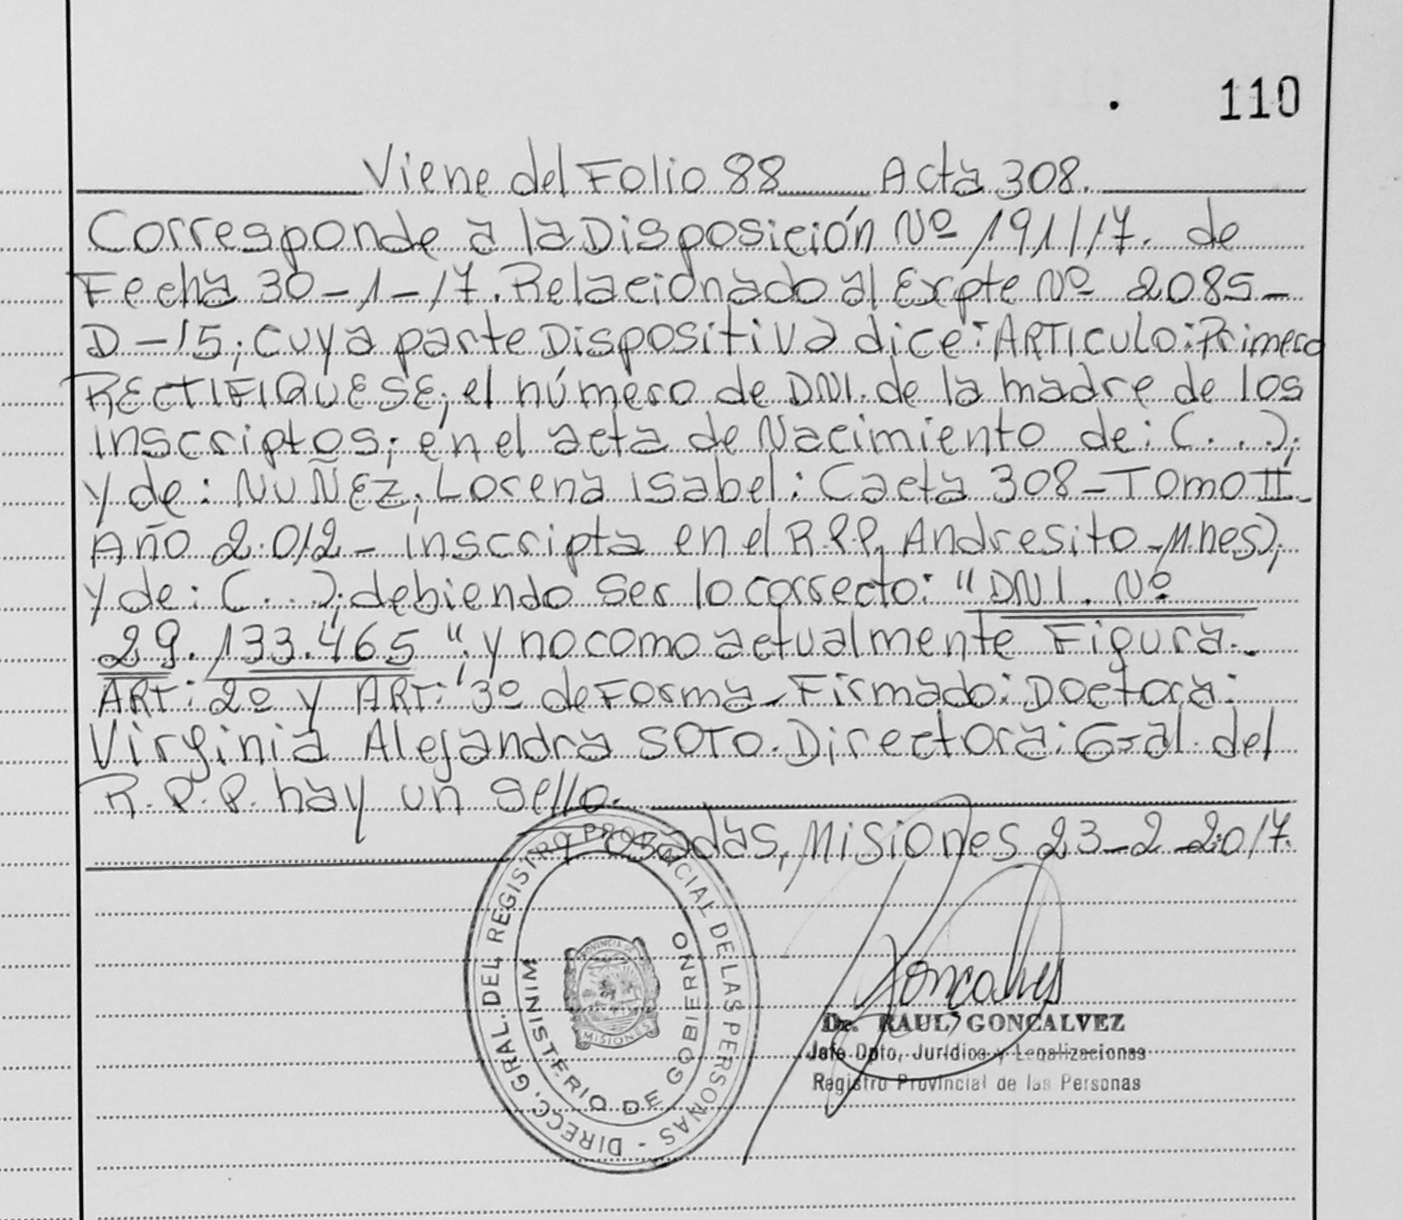 110
Viene del Folio 88 Acta 308.
Corresponde a la Disposición Nº 191/17. de
Fecha 30-1-17. Relacionado al Expte Nº 2085-
D-15; cuya parte Dispositiva dice: ARTICULO: Primero
RECTIFIQUESE; el número de DNI. de la madre de los
inscriptos; en el acta de Nacimiento de: (...);
y de: NUÑEZ, Lorena Isabel: (acta 308-TOMO II-
Año 2.012- inscripta en el R.P.P. Andresito-Mnes);
y de: (...); debiendo ser lo correcto: "DNI. Nº
29.133.465", y no como actualmente Figura.-
ART: 2º y ART: 3º de Forma- Firmado: Doctora:
Virginia Alejandra SOTO. Directora: Gral. del
R.P.P. hay un sello.
Posadas, Misiones 23-2-2017.
DIRECC. GRAL. DEL REGISTRO PROVINCIAL DE LAS PERSONAS -
MINISTERIO DE GOBIERNO
PROVINCIA DE
MISIONES
Goncalves
Dr. RAUL GONCALVEZ
Jefe Dpto, Jurídico y Legalizaciones
Registro Provincial de las Personas